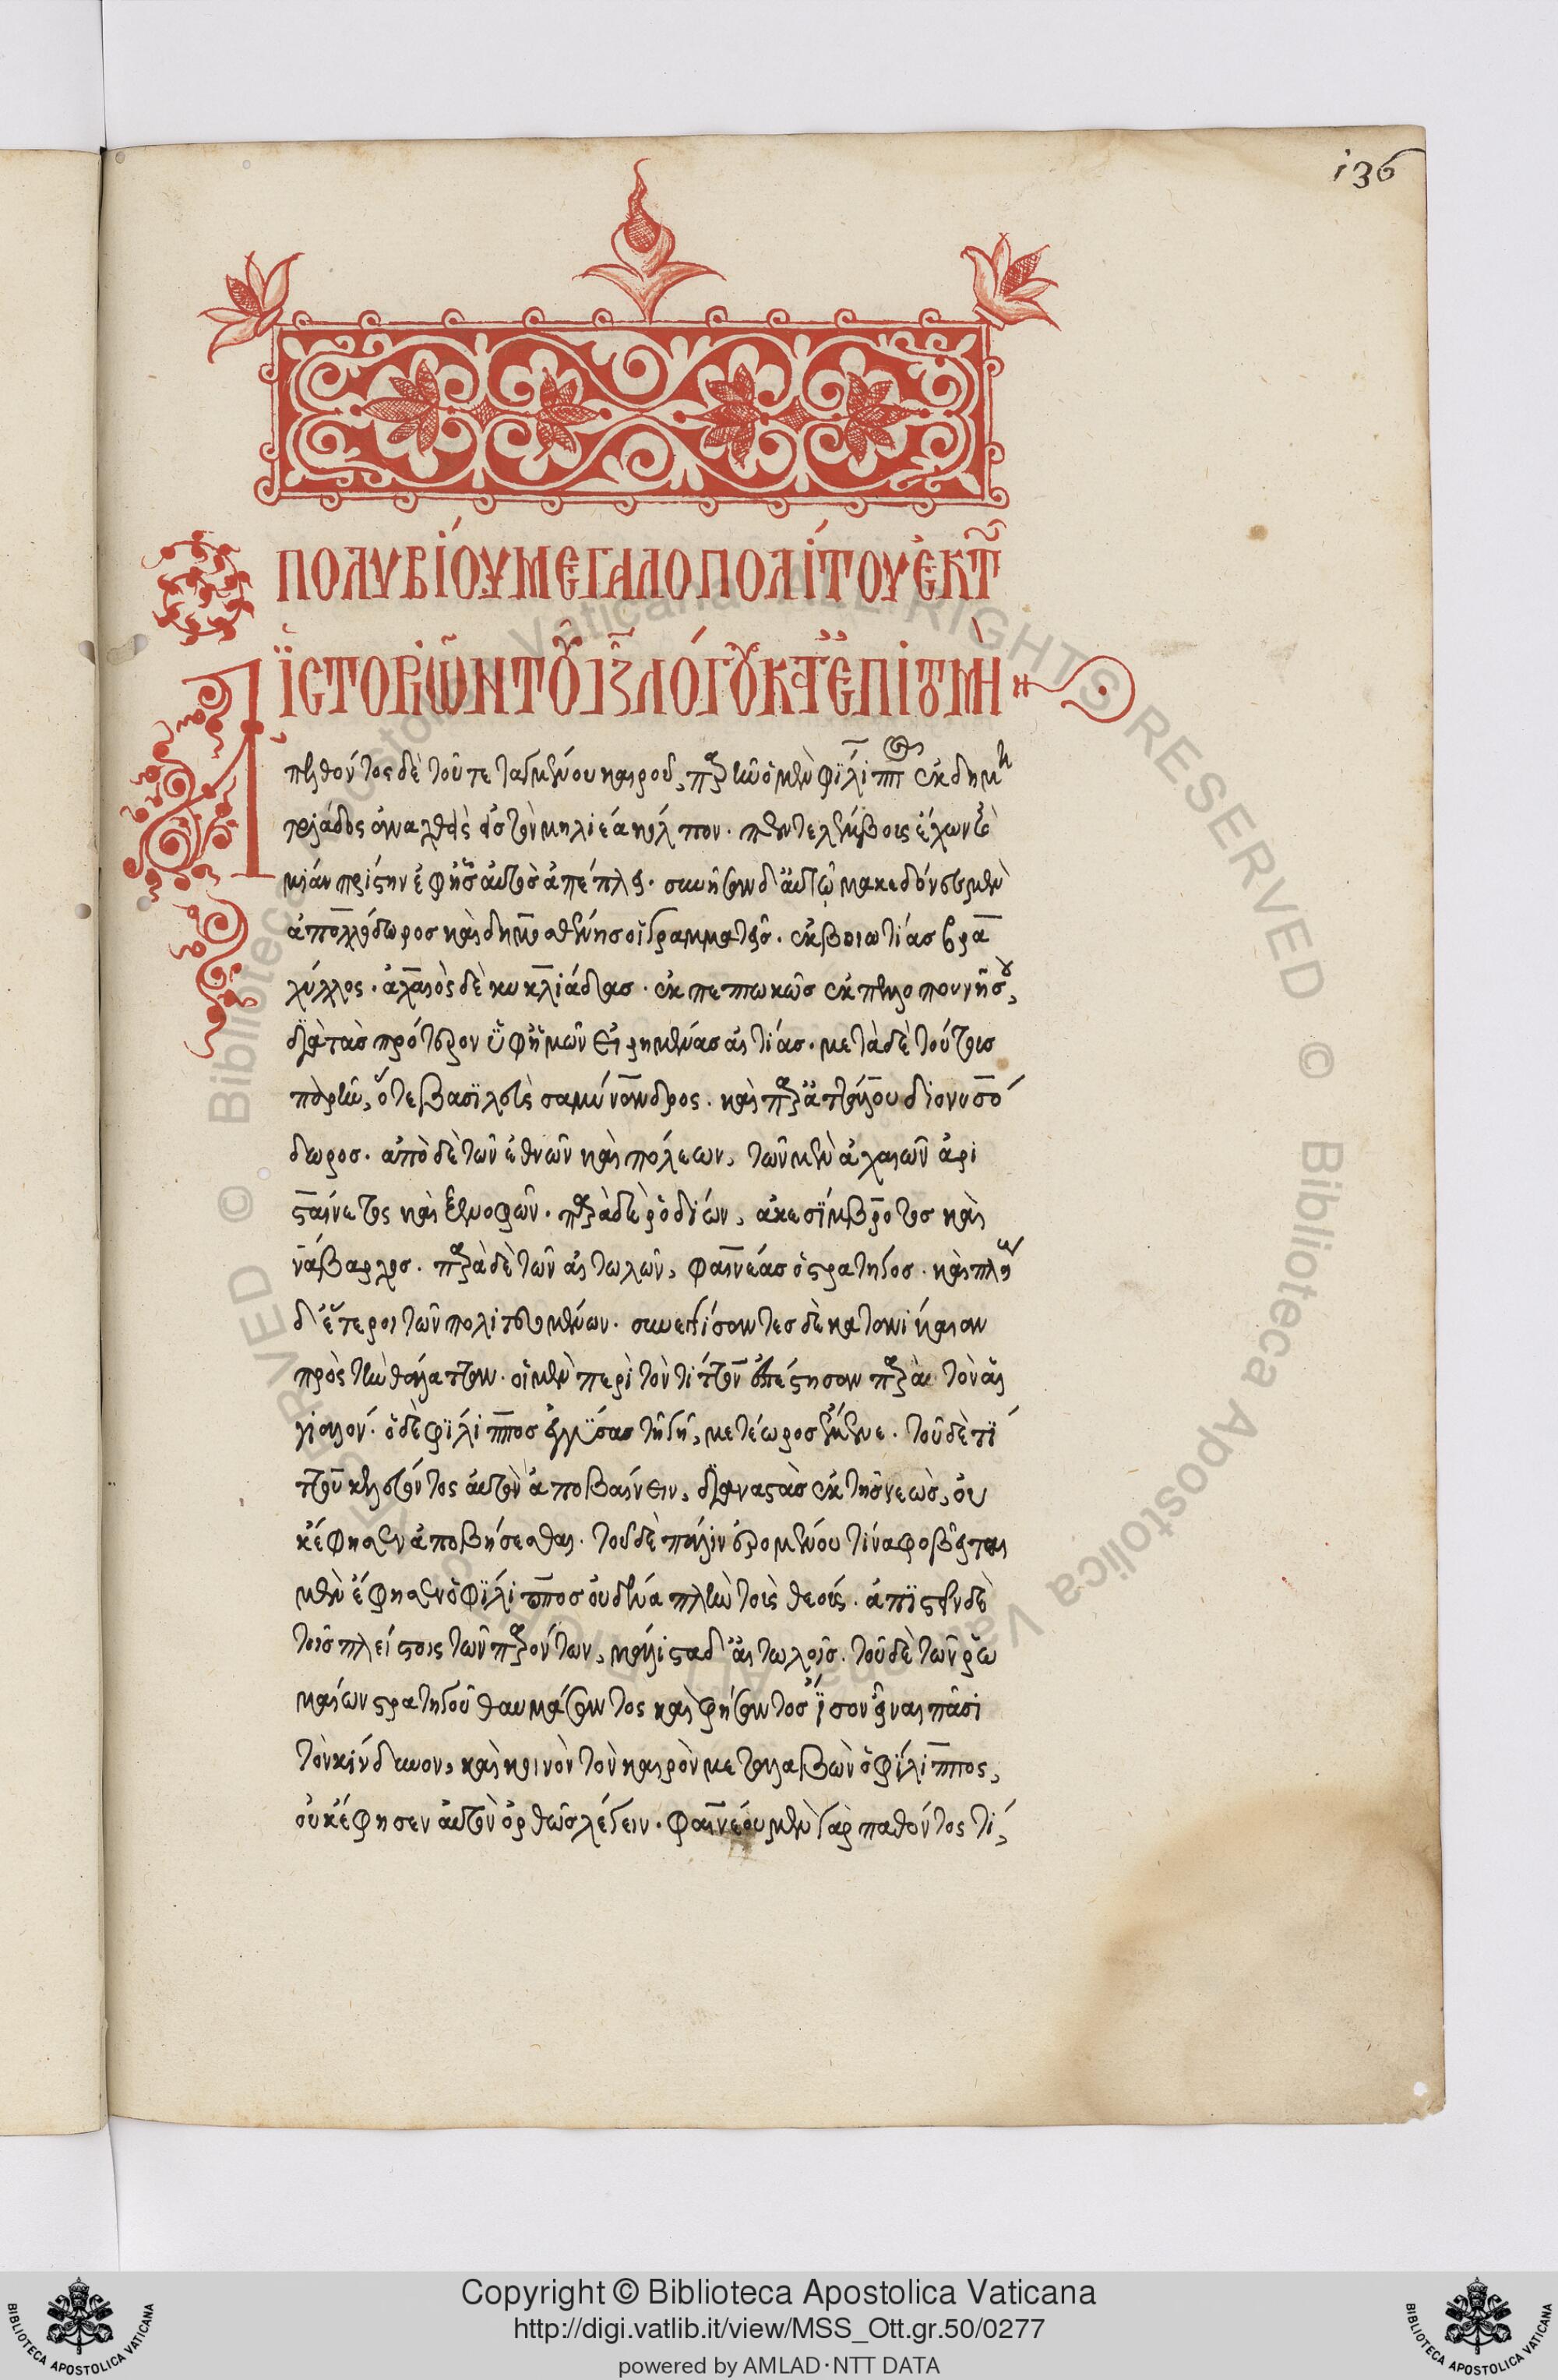 136
ΠΟΛΥΒΊΟΥ ΜΕΓΑΛΟΠΟΛΊΤΟΥ ἘΚ ΤῶΝ
ἹΣΤΟΡΙῶΝ ΤΟῦ ΙΖ ΛΌΓΟΥ ΚΑΤ' ἘΠΙΤΟΜΉ
Ἐπελθόντος δὲ τοῦ τεταγμένου καιροῦ, παρῆν ὁ μὲν φίλιππος ἐκ δημη
τριάδος ἀναχθεὶς εἰς τὸν μηλιέα κόλπον. πέντε λέμβους ἔχων καὶ
μίαν πρίστην ἐφ' ἧς αὐτὸς ἀπέπλει. συνῆσαν δ' αὐτῷ μακεδόνες μὲν
ἀπολλόδωρος καὶ δημοσθένης οἱ γραμματεῖς. ἐκ βοιωτίας βρα
χύλλος. ἀχαιὸς δὲ κυκλιάδας. ἐκπεπτωκὼς ἐκ πελοποννήσου,
διὰ τὰς πρότερον ὑφ' ἡμῶν εἰρημένας αἰτίας. μετὰ δὲ τούτοις
παρῆν, ὅ τε βασιλεὺς ἀμύνανδρος. καὶ παρὰ ἀττάλου διονυσό
δωρος. ἀπὸ δὲ τῶν ἐθνῶν καὶ πόλεων, τῶν μὲν ἀχαιῶν ἀρί
σταινετος καὶ ξενοφῶν. παρὰ δὲ ῥοδίων, ἀκεσίμβροτος καὶ
νάβαρχος. παρὰ δὲ τῶν αἰτωλῶν, φαινέας ὁ στρατηγὸς. καὶ πλείους
δ' ἕτεροι τῶν πολιτευομένων. συνεγγίσαντες δὲ κατὰ νίκαιαν
πρὸς τὴν θάλατταν. οἱ μὲν περὶ τὸν τίτον ἐπέστησαν παρ' αὐτὸν αἰ
γιαλόν. ὁ δὲ φίλιππος ἐγγίσας τῇ γῇ, μετέωρος ἔμενε. τοῦ δὲ τί
του κελεύοντος αὐτὸν ἀποβαίνειν, διαναστὰς ἐκ τῆς νεὼς, οὐ
κ ἔφησεν ἀποβήσεσθαι. τοῦ δὲ πάλιν ἐρομένου τίνα φοβεῖται
μὲν ἔφησεν ὁ φίλιππος οὐδένα πλὴν τοὺς θεούς. ἀπιστεῖν δὲ
τοῖς πλείστοις τῶν παρόντων, μάλιστα δ' αἰτωλοῖς. τοῦ δὲ τῶν ῥω
μαίων στρατηγοῦ θαυμάσαντος καὶ φήσαντος ἴσον εἶναι πᾶσι
τὸν κίνδυνον, καὶ κοινὸν τὸν καιρὸν μεταλαβὼν ὁ φίλιππος,
οὐκ ἔφησεν αὐτὸν ὀρθῶς λέγειν. φαινέου μὲν γὰρ παθόντος τί,
Copyright © Biblioteca Apostolica Vaticana
http://digi.vatlib.it/view/MSS_Ott.gr.50/0277
powered by AMLAD·NTT DATA